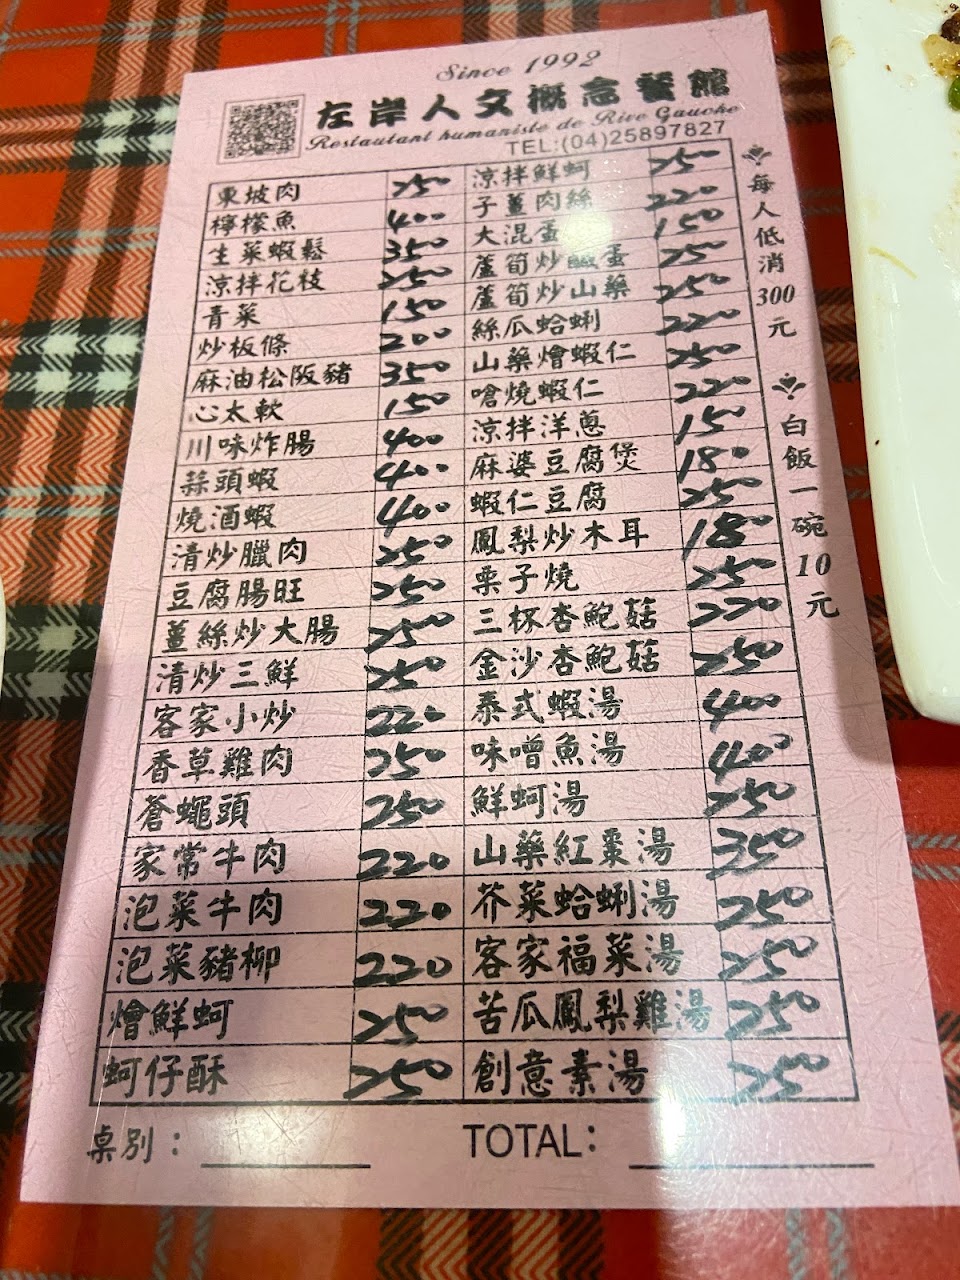 Since 1992
左岸人文概念餐館
Restautant humaniste de Rive Gauche
TEL:(04)25897827
東坡肉 250
檸檬魚 400
生菜蝦鬆 350
涼拌花枝 250
青菜 150
炒板條 200
麻油松阪豬 350
心太軟 150
川味炸腸 400
蒜頭蝦 400
燒酒蝦 400
清炒臘肉 250
豆腐腸旺 250
薑絲炒大腸 250
清炒三鮮 250
客家小炒 220
香草雞肉 250
蒼蠅頭 250
家常牛肉 220
泡菜牛肉 220
泡菜豬柳 220
燴鮮蚵 250
蚵仔酥 250
涼拌鮮蚵 250
子薑肉絲 220
大混蛋 150
蘆筍炒鹹蛋 250
蘆筍炒山藥 250
絲瓜蛤蜊 220
山藥燴蝦仁 250
嗆燒蝦仁 220
涼拌洋蔥 150
麻婆豆腐煲 180
蝦仁豆腐 250
鳳梨炒木耳 180
栗子燒 250
三杯杏鮑菇 220
金沙杏鮑菇 250
泰式蝦湯 400
味噌魚湯 400
鮮蚵湯 250
山藥紅棗湯 350
芥菜蛤蜊湯 250
客家福菜湯 250
苦瓜鳳梨雞湯 250
創意素湯 250
每人低消300元
白飯一碗10元
桌別：
TOTAL：